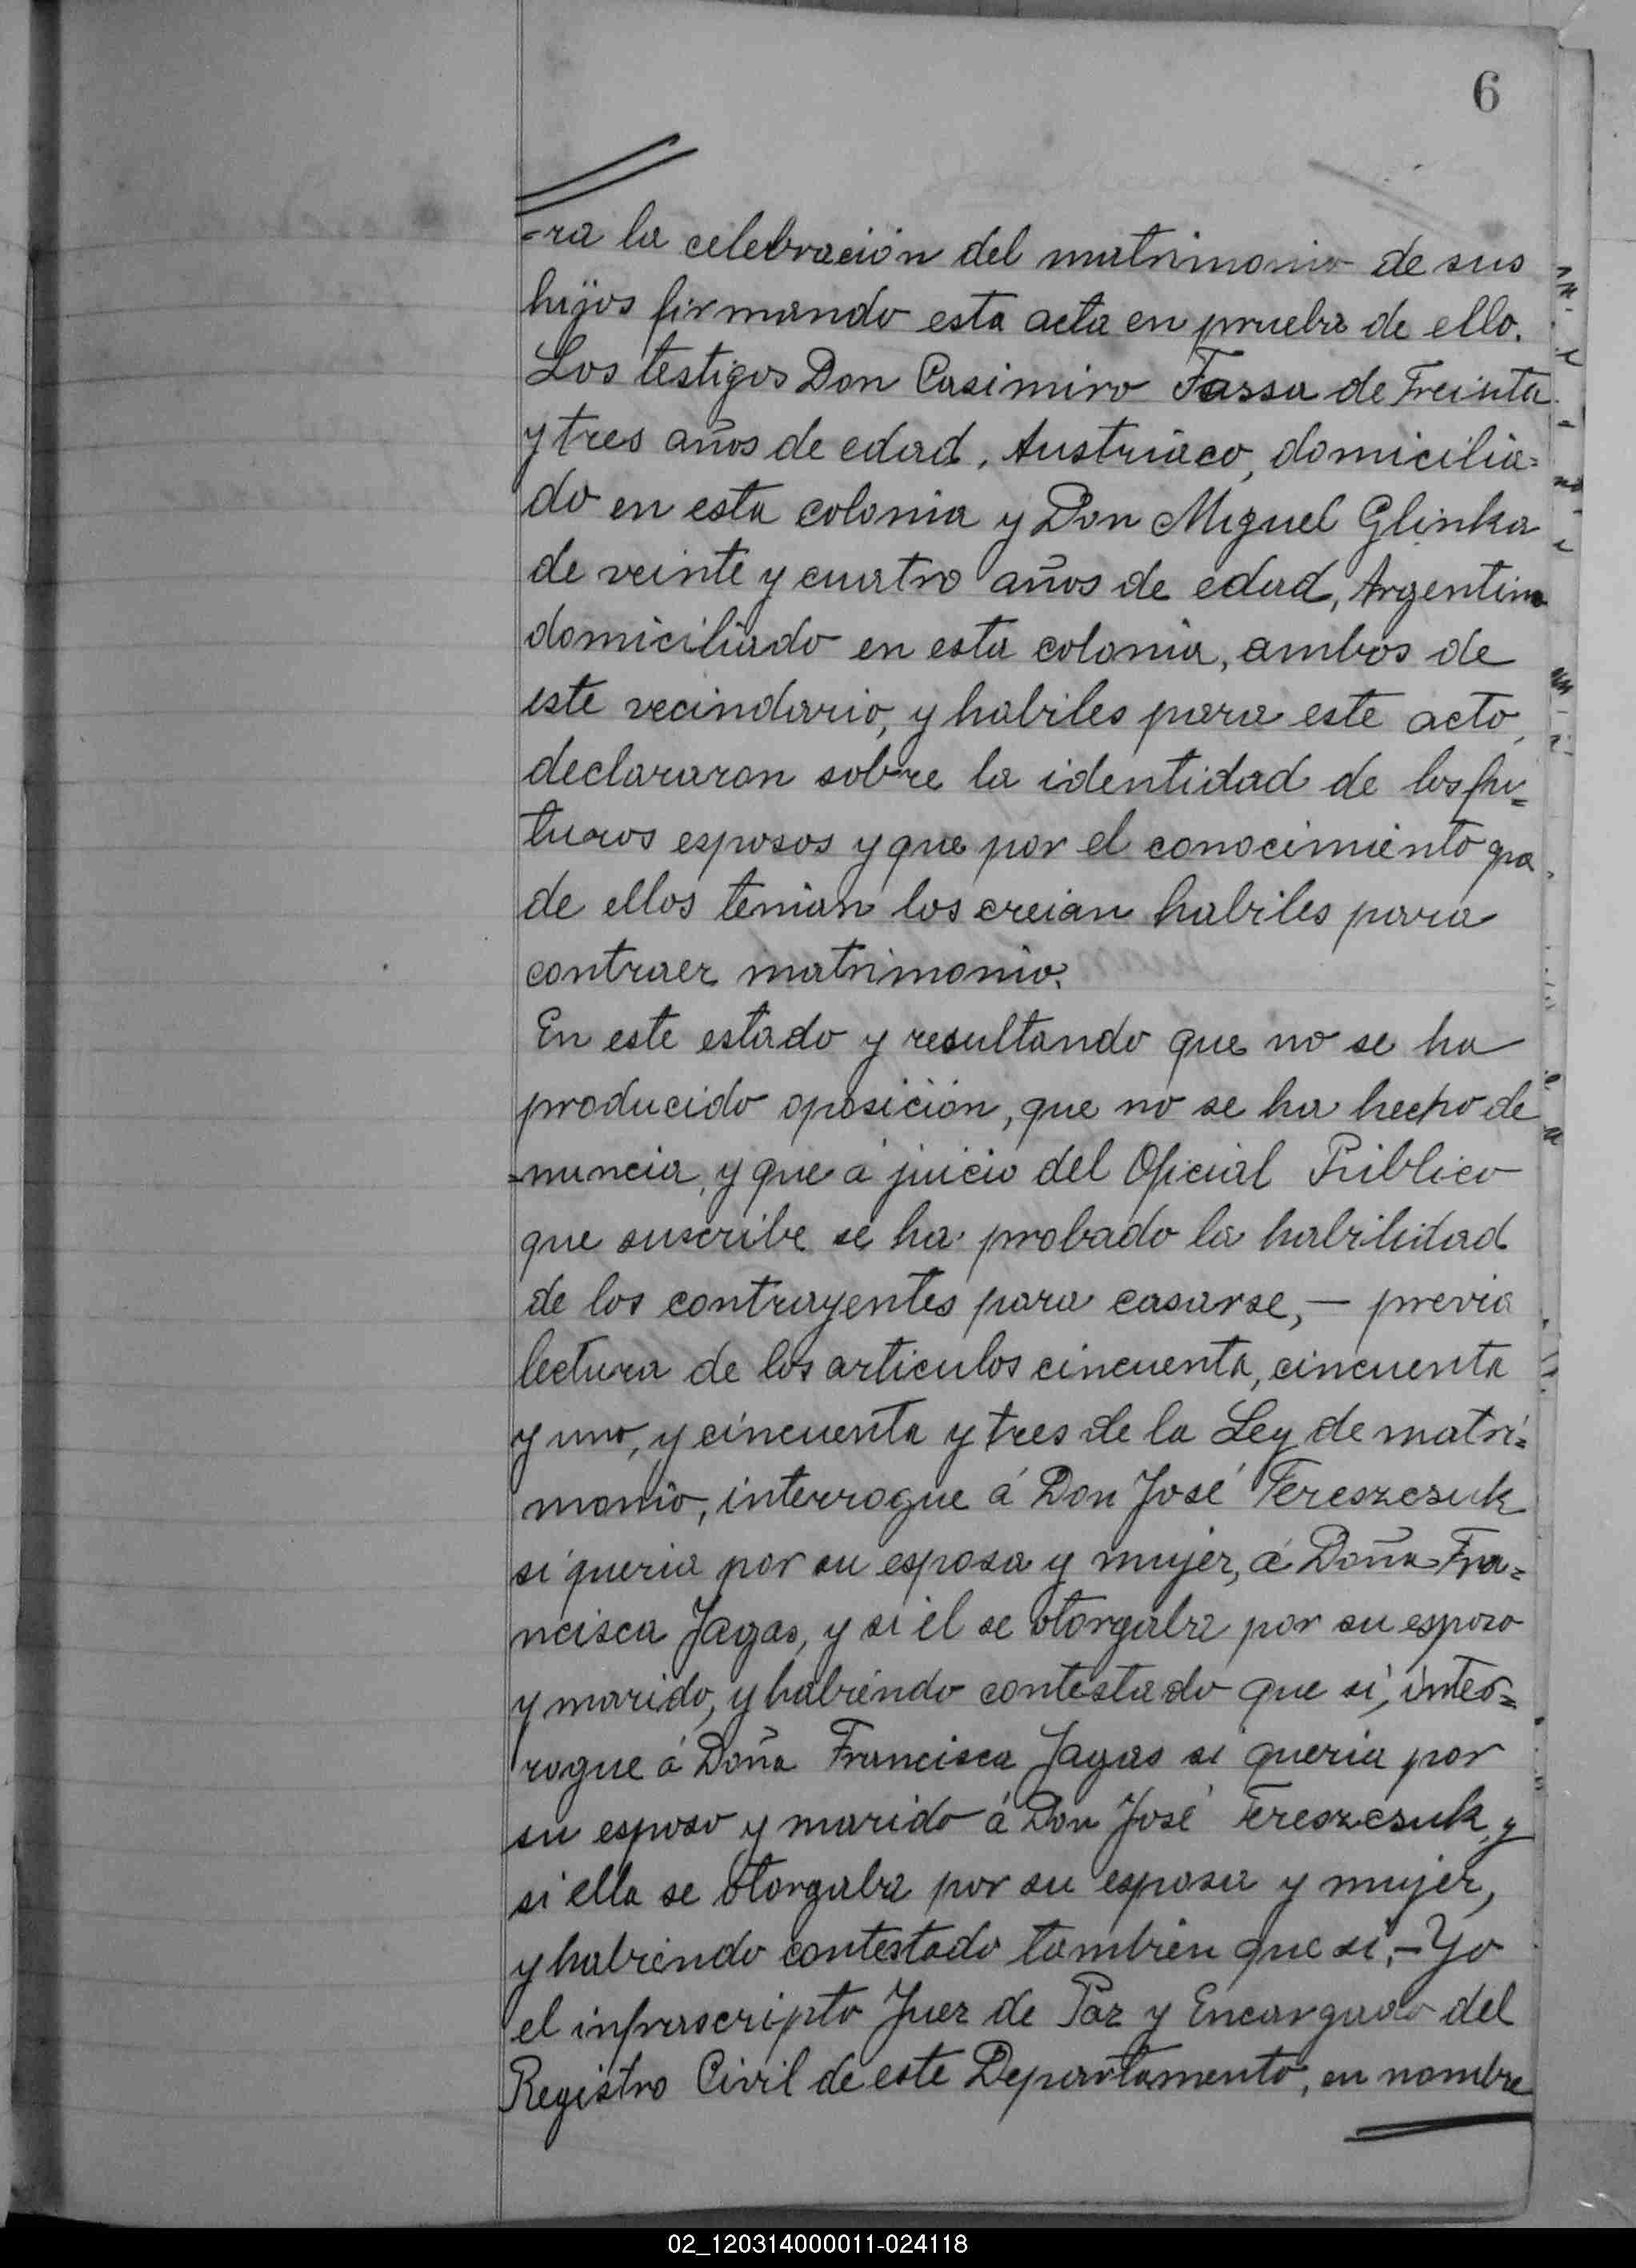 6
-ra la celebración del matrimonio de sus
hijos firmando esta acta en prueba de ello.
Los testigos Don Casimiro Fassa de Treinta
y tres años de edad, Austriaco, domicilia=
do en esta colonia y Don Miguel Glinka
de veinte y cuatro años de edad, Argentino
domiciliado en esta colonia, ambos de
este vecindario, y habiles para este acto,
declararon sobre la identidad de los fu=
turos esposos y que por el conocimiento que
de ellos tenian los creian habiles para
contraer matrimonio.
En este estado y resultando que no se ha
producido oposición, que no se ha hecho de
=nuncia, y que á juicio del Oficial Público
que suscribe se ha probado la habilidad
de los contrayentes para casarse, — previa
lectura de los articulos cincuenta, cincuenta
y uno, y cincuenta y tres de la Ley de matri=
monio, interrogue á Don José Tereszcsuk
si queria por su esposa y mujer, á Doña Fra=
ncisca Jagas, y si él se otorgaba por su esposo
y marido, y habiendo contestado que si, inter=
rogue á Doña Francisca Jagas si queria por
su esposo y marido á Don José Tereszcsuk, y
si ella se otorgaba por su esposa y mujer,
y habiendo contestado tambien que si, — Yo
el infrascripto Juez de Paz y Encargado del
Registro Civil de este Departamento, en nombre
02_120314000011-024118